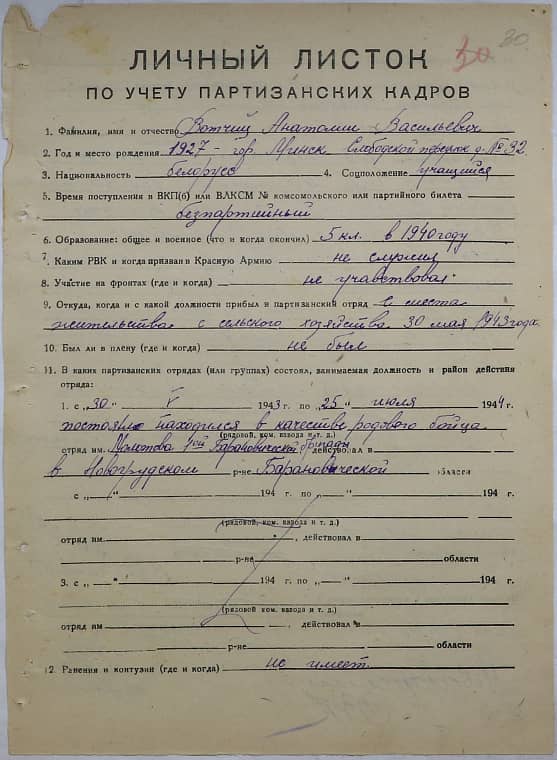 30
30
ЛИЧНЫЙ ЛИСТОК
ПО УЧЕТУ ПАРТИЗАНСКИХ КАДРОВ
1. Фамилия, имя и отчество Вотчиц Анатолии Васильевич
2. Год и место рождения 1927 - гор. Минск Слободской переулок д. № 32
3. Национальность белорус 4. Соцположение учащийся
5. Время поступления в ВКП(б) или ВЛКСМ № комсомольского или партийного билета
безпартийный
6. Образование: общее и военное (что и когда окончил) 5 кл. в 1940 году
7. Каким РВК и когда призван в Красную Армию не служил
8. Участие на фронтах (где и когда) не учавствовал
9. Откуда, когда и с какой должности прибыл и партизанский отряд с места
жительства с сельского хозяйства 30 мая 1943 года.
10. Был ли в плену (где и когда) не был
11. В каких партизанских отрядах (или группах) состоял, занимаемая должность и район действия
отряда:
1. с „30“ V 1943 г. по „25“ июля 1944 г.
постоянно находился в качестве рядового бойца
(рядовой, ком. взвода и т. д.)
отряд им. Молотова 1ой Барановической бригады действовал в
в Новогрудском р-не Барановической области
с „ “ 194 г. по „ “ 194 г.
(рядовой, ком. взвода и т. д.)
отряд им , действовал в
р-не области
3. с „ “ 194 г. по „ “ 194 г.
(рядовой ком. взвода и т. д.)
отряд им , действовал в
р-не области
12. Ранения и контузии (где и когда) не имеет